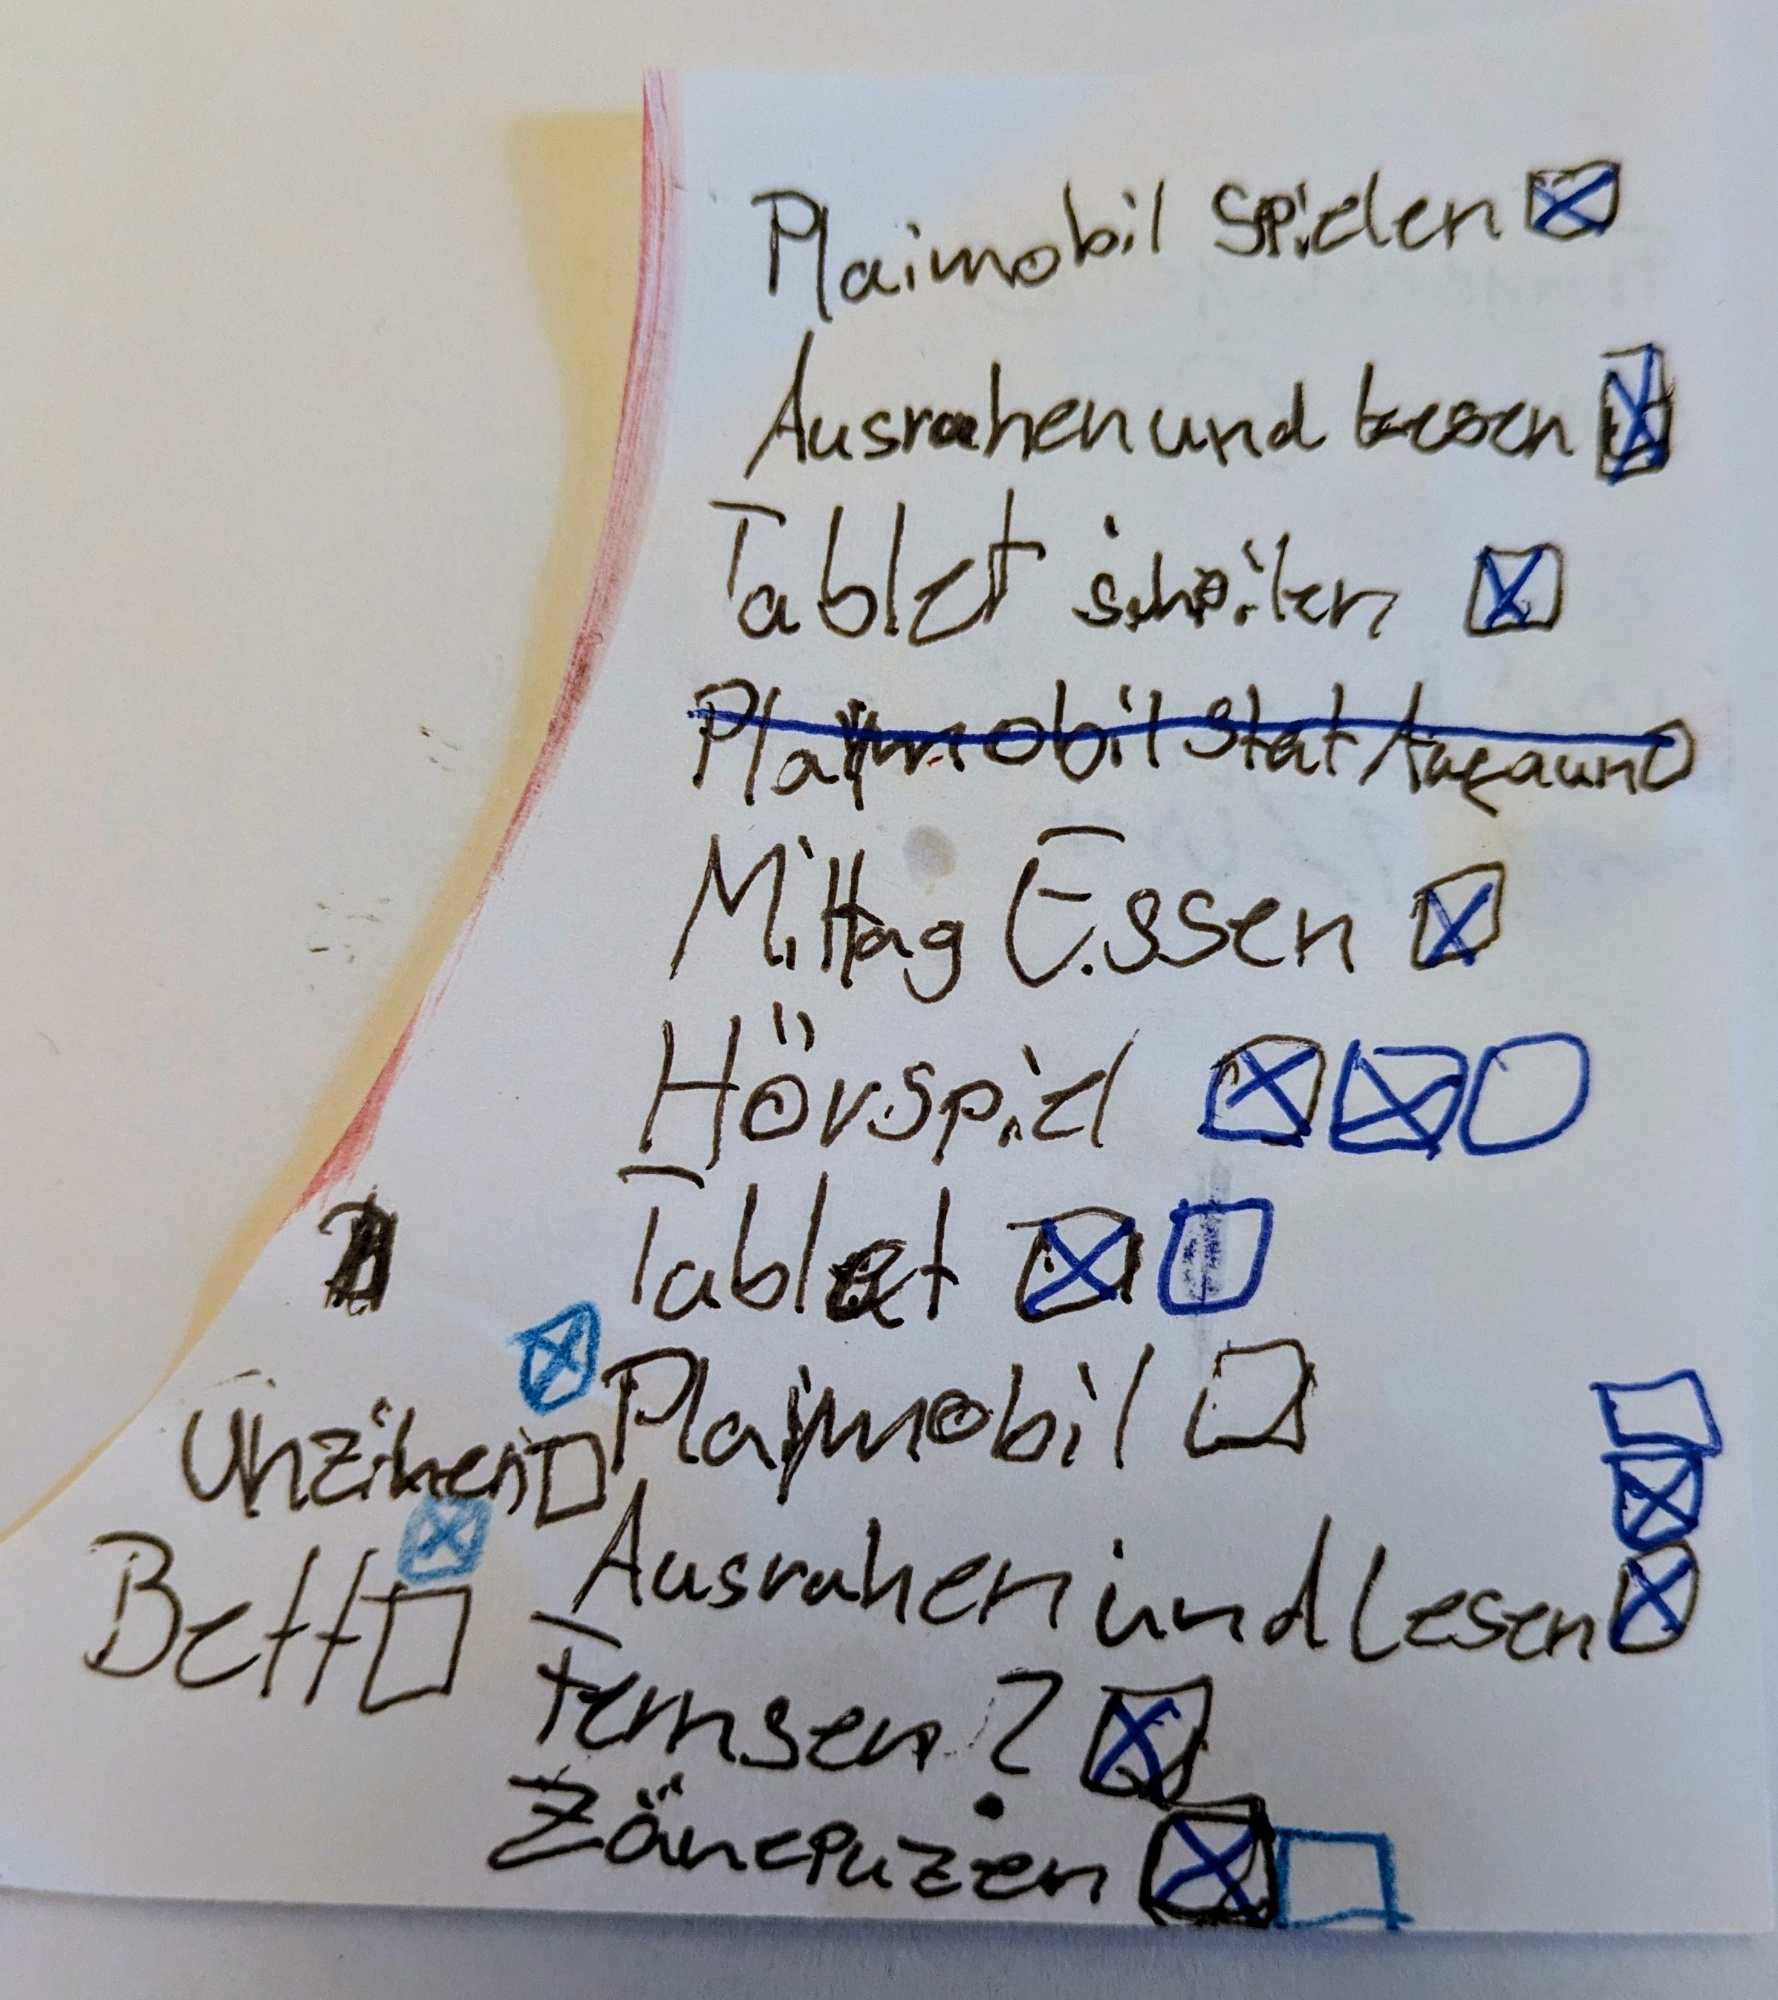 Plaimobil Spielen
Ausruhen und lesen
Tablet
Playmobil Stat
Mittag Essen
Hörspiel
Tablet
Playmobil
Unzihen
Ausruhen und lesen
Bett
Fernsen?
Zänepuzen